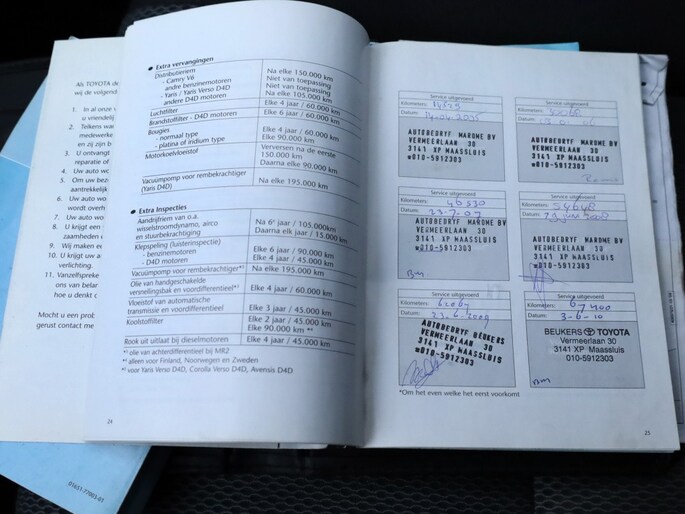 Als TOYOTA de
wij de volgen
1. In al onze v
u vriendelij
2. Telkens wa
medewerke
en zij zijn b
3. U ontvangt
reparatie of
4. Uw auto wo
5. Om uw bez
aantrekkelij
6. Uw auto wo
wordt overh
7. Uw auto wo
8. U krijgt een
zaamheden
9. Wij maken e
10. U krijgt uw a
verlichting.
11. Vanzelfspreke
ons van belan
hoe u denkt o
Mocht u een prob
gerust contact me
91631-77003-01
● Extra vervangingen
Distributieriem
- Camry V6 Na elke 150.000 km
andre benzinemotoren Niet van toepassing
- Yaris / Yaris Verso D4D Niet van toepassing
andere D4D motoren Na elke 105.000 km
Luchtfilter Elke 4 jaar / 60.000 km
Brandstoffilter - D4D motoren Elke 6 jaar / 60.000 km
Bougies
- normal type Elke 4 jaar / 60.000 km
- platina of iridium type Elke 90.000 km
Motorkoelvloeistof Verversen na de eerste
150.000 km
Daarna elke 90.000 km
Vacuümpomp voor rembekrachtiger
(Yaris D4D) Na elke 195.000 km
● Extra Inspecties
Aandrijfriem van o.a.
wisselstroomdynamo, airco
en stuurbekrachtiging
Na 6e jaar / 105.000km
Daarna elk jaar / 15.000 km
Klepspeling (luisterinspectie)
- benzinemotoren Elke 6 jaar / 90.000 km
- D4D motoren Elke 4 jaar / 45.000 km
Vacuümpomp voor rembekrachtiger*³ Na elke 195.000 km
Olie van handgeschakelde
versnellingsbak en voordifferentieel*¹ Elke 4 jaar / 60.000 km
Vloeistof van automatische
transmissie en voordifferentieel Elke 3 jaar / 45.000 km
Koolstoffilter Elke 2 jaar / 45.000 km
Elke 90.000 km *²
Rook uit uitlaat bij dieselmotoren Elke 4 jaar / 45.000 km
*¹ olie van achterdifferentieel bij MR2
*² alleen voor Finland, Noorwegen en Zweden
*³ voor Yaris Verso D4D, Corolla Verso D4D, Avensis D4D
24
Service uitgevoerd
Kilometers:
Datum:
AUTOBEDRYF MAROME BV
VERMEERLAAN 30
3141 XP MAASSLUIS
☎010-5912303
Service uitgevoerd
Kilometers:
Datum:
AUTOBEDRYF MAROME BV
VERMEERLAAN 30
3141 XP MAASSLUIS
☎010-5912303
Service uitgevoerd
Kilometers: 46530
Datum: 23-7-07
AUTOBEDRYF MAROME BV
VERMEERLAAN 30
3141 XP MAASSLUIS
☎010-5912303
Service uitgevoerd
Kilometers:
Datum:
AUTOBEDRYF MAROME BV
VERMEERLAAN 30
3141 XP MAASSLUIS
☎010-5912303
Service uitgevoerd
Kilometers:
Datum: 23-6-2009
AUTOBEDRYF BEUKERS
VERMEERLAAN 30
3141 XP MAASSLUIS
☎010-5912303
Service uitgevoerd
Kilometers: 67400
Datum: 3-6-10
BEUKERS TOYOTA
Vermeerlaan 30
3141 XP Maassluis
010-5912303
*Om het even welke het eerst voorkomt
25